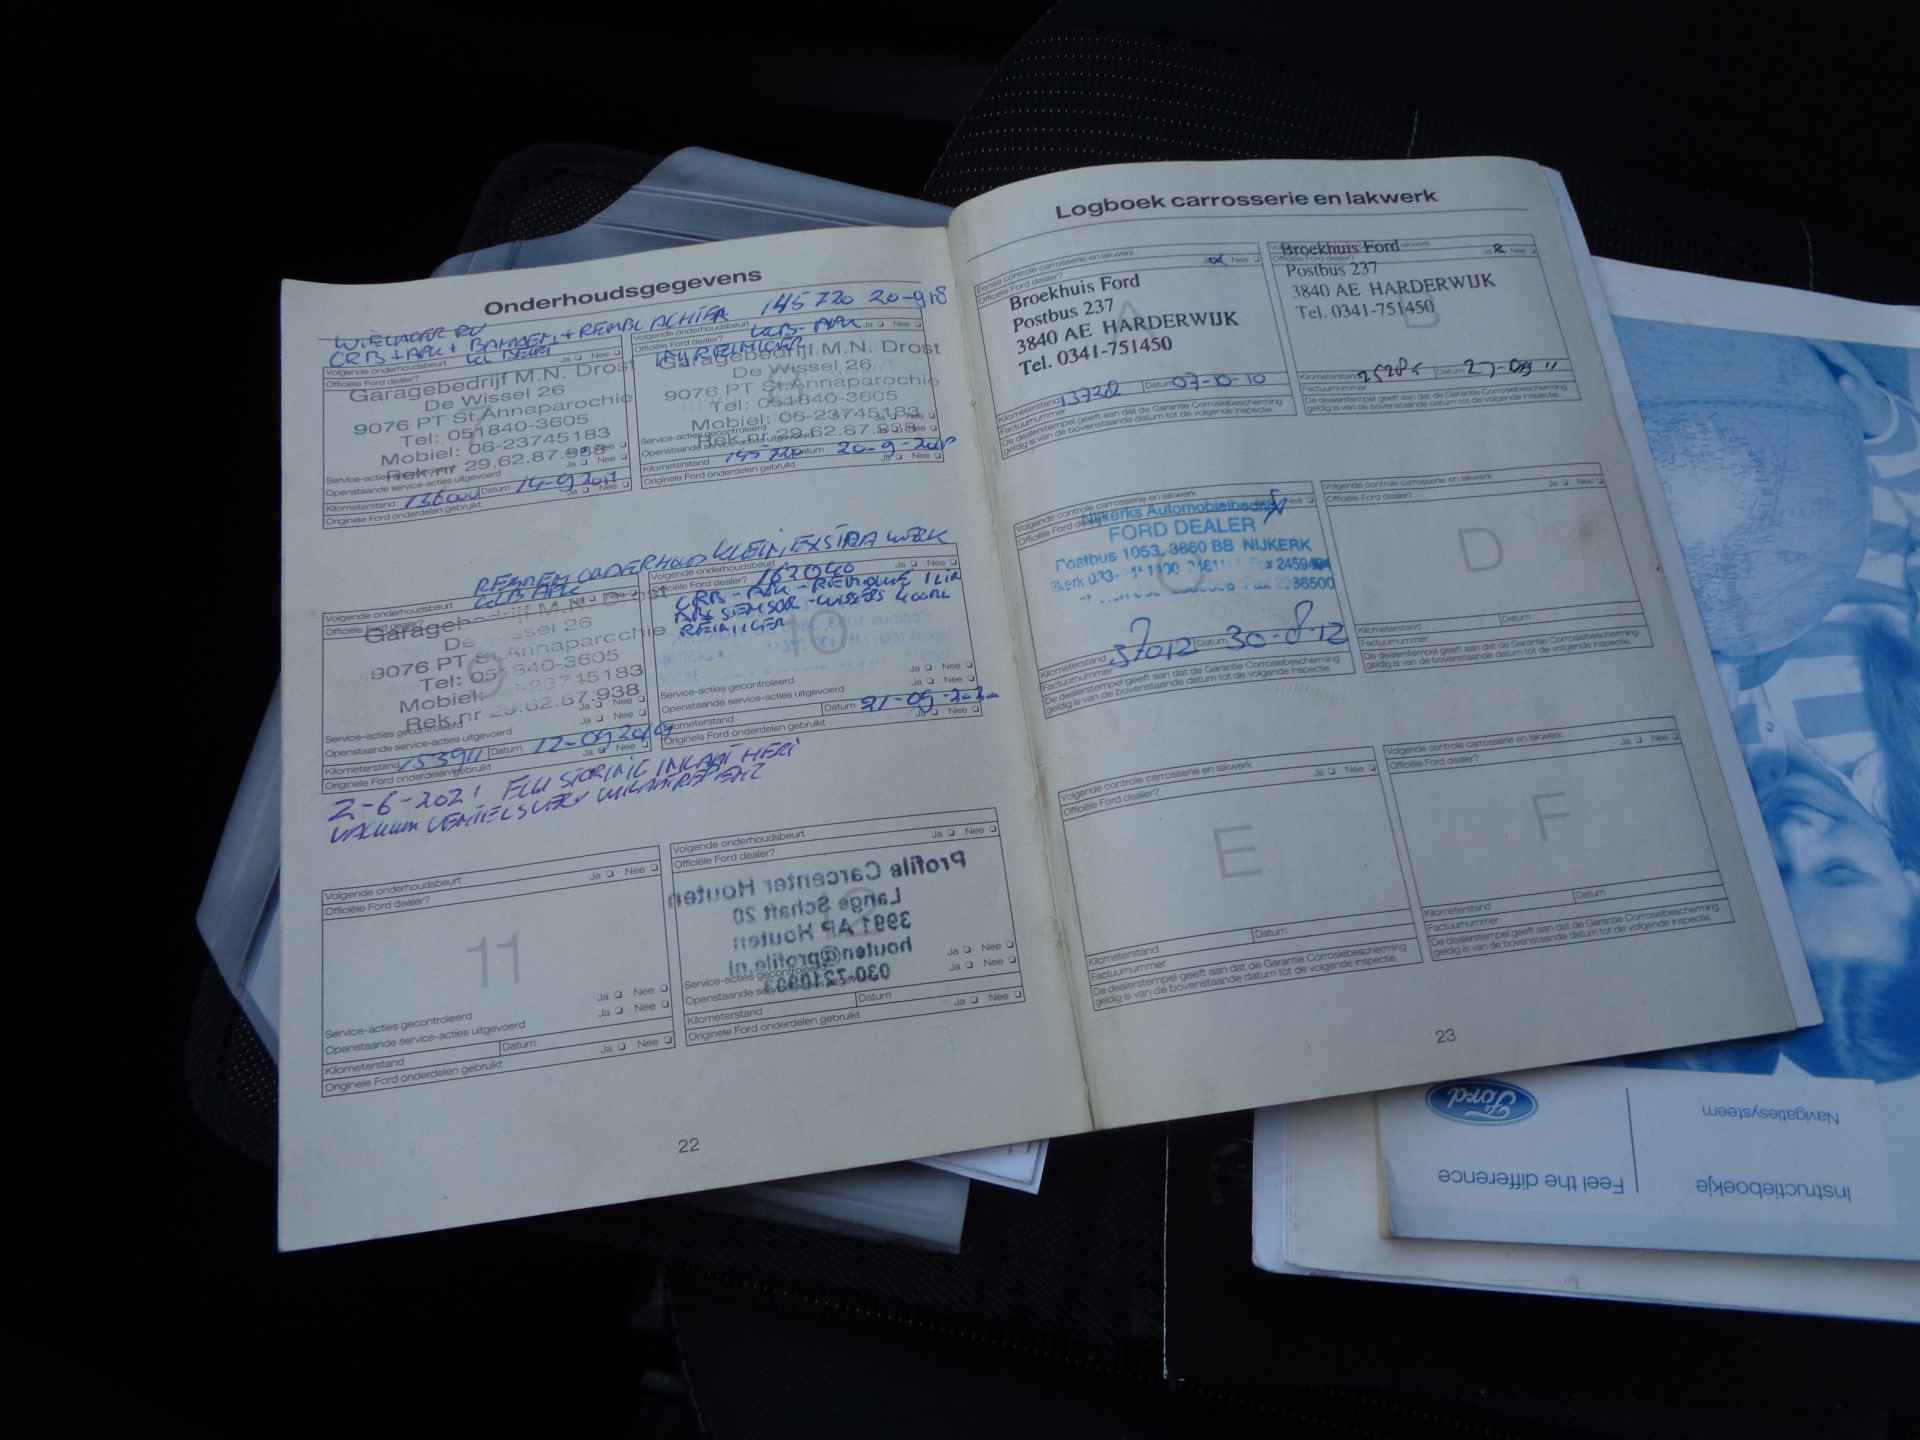 Onderhoudsgegevens
145720 20-9-18
CRB + APK + BANDEN + REMBL ACHTER
KL BEURT
Volgende onderhoudsbeurt Ja Nee
Officiële Ford dealer?
Garagebedrijf M.N. Drost
De Wissel 26
9076 PT St.Annaparochie
Tel: 051840-3605
Mobiel: 06-23745183
Rek.nr 29.62.87.938
Service-acties
Openstaande service-acties uitgevoerd Ja Nee
Kilometerstand 136000 Datum 14-9-2017
Originele Ford onderdelen gebruikt Ja Nee
Volgende onderhoudsbeurt Ja Nee
Officiële Ford dealer?
Garagebedrijf M.N. Drost
De Wissel 26
9076 PT St.Annaparochie
Tel: 051840-3605
Mobiel: 06-23745183
Rek.nr 29.62.87.938
Service-acties gecontroleerd
Openstaande service-acties uitgevoerd
Kilometerstand 145720 Datum 20-9-2018
Originele Ford onderdelen gebruikt Ja Nee
REMMEN ONDERHOUD KLEIN EXSTRA WERK
Volgende onderhoudsbeurt
Officiële Ford dealer?
Garagebedrijf M.N. Drost
De Wissel 26
9076 PT St.Annaparochie
Tel: 051840-3605
Mobiel: 06-23745183
Rek.nr 29.62.87.938
Service-acties gecontroleerd Ja Nee
Openstaande service-acties uitgevoerd Ja Nee
Kilometerstand 153911 Datum 12-09-2019
Originele Ford onderdelen gebruikt Ja Nee
Volgende onderhoudsbeurt Ja Nee
Officiële Ford dealer? 163040
ABS SENSOR
10
Service-acties gecontroleerd Ja Nee
Openstaande service-acties uitgevoerd Ja Nee
Kilometerstand Datum
Originele Ford onderdelen gebruikt Ja Nee
2-6-2021
VACUUM
Volgende onderhoudsbeurt Ja Nee
Officiële Ford dealer?
11
Service-acties gecontroleerd Ja Nee
Openstaande service-acties uitgevoerd Ja Nee
Kilometerstand Datum
Originele Ford onderdelen gebruikt Ja Nee
Volgende onderhoudsbeurt Ja Nee
Officiële Ford dealer?
Profile Carcenter Houten
Lange Schaft 20
3991 AP Houten
houten@profile.nl
Service-acties gecontroleerd Ja Nee
Openstaande service-acties uitgevoerd Ja Nee
Kilometerstand Datum
Originele Ford onderdelen gebruikt Ja Nee
22
Logboek carrosserie en lakwerk
Eerste controle carrosserie en lakwerk Ja Nee
Officiële Ford dealer?
A
Broekhuis Ford
Postbus 237
3840 AE HARDERWIJK
Tel. 0341-751450
Kilometerstand 13728 Datum 07-10-10
Factuurnummer
De dealerstempel geeft aan dat de Garantie Corrosiebescherming
geldig is van de bovenstaande datum tot de volgende inspectie.
Ja Nee
Officiële Ford dealer?
B
Broekhuis Ford
Postbus 237
3840 AE HARDERWIJK
Tel. 0341-751450
Kilometerstand 25285 Datum
Factuurnummer
De dealerstempel geeft aan dat de Garantie Corrosiebescherming
geldig is van de bovenstaande datum tot de volgende inspectie.
Volgende controle carrosserie en lakwerk Nee
Officiële Ford dealer?
C
Nijkerks Automobielbedrijf
FORD DEALER
Postbus 1053, 3860 BB NIJKERK
Kilometerstand 37012 Datum 30-8-12
Factuurnummer
De dealerstempel geeft aan dat de Garantie Corrosiebescherming
geldig is van de bovenstaande datum tot de volgende inspectie.
Volgende controle carrosserie en lakwerk Ja Nee
Officiële Ford dealer?
D
Kilometerstand Datum
Factuurnummer
De dealerstempel geeft aan dat de Garantie Corrosiebescherming
geldig is van de bovenstaande datum tot de volgende inspectie.
Volgende controle carrosserie en lakwerk Ja Nee
Officiële Ford dealer?
E
Kilometerstand Datum
Factuurnummer
De dealerstempel geeft aan dat de Garantie Corrosiebescherming
geldig is van de bovenstaande datum tot de volgende inspectie.
Volgende controle carrosserie en lakwerk Ja Nee
Officiële Ford dealer?
F
Kilometerstand Datum
Factuurnummer
De dealerstempel geeft aan dat de Garantie Corrosiebescherming
geldig is van de bovenstaande datum tot de volgende inspectie.
23
Instructieboekje
Feel the difference
Navigatiesysteem
Ford